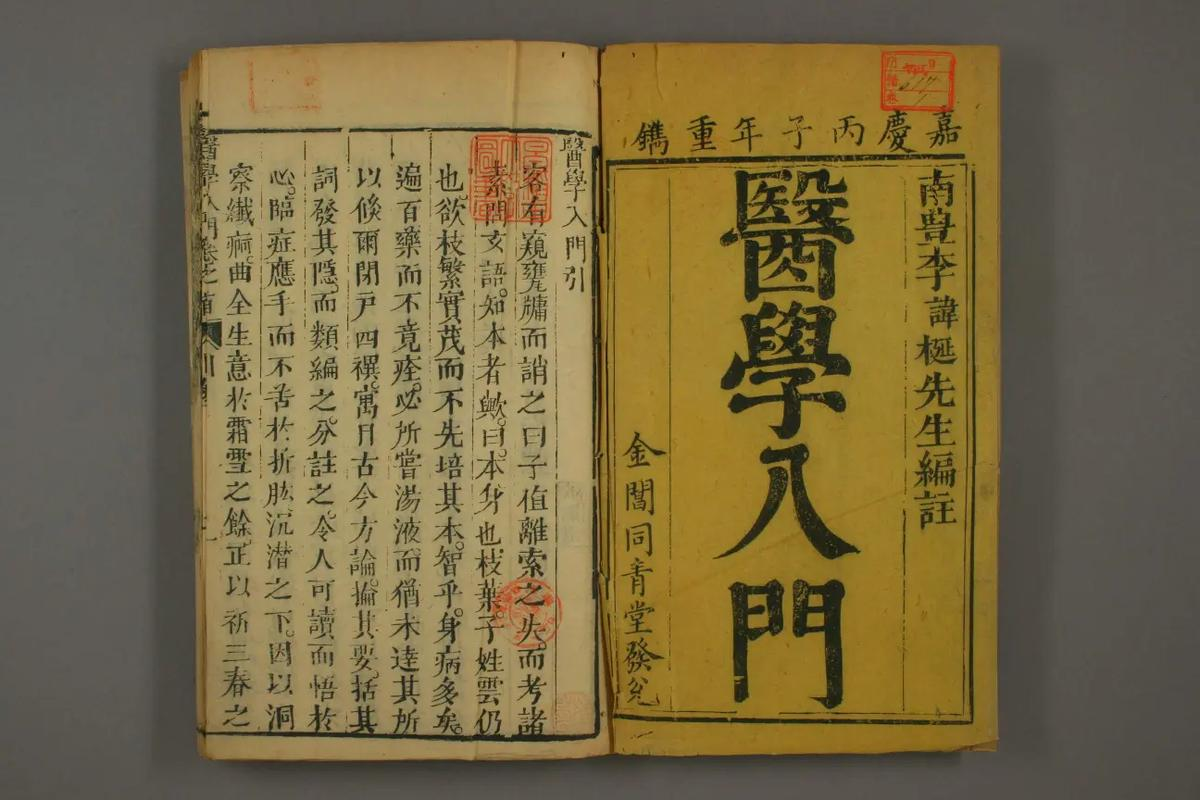 嘉慶丙子年重鐫
南豊李諱梃先生編註
醫學入門
金閶同青堂發兌
醫學入門引
客有窺甕牖而誚之曰子值離索之失而考諸
素問玄語。知本者歟。曰。本身也枝葉。子姓雲仍
也。欲枝繁實茂而不先培其本。智乎。身病多矣。
遍百藥而不竟痊。必所嘗湯液而猶未達其所
以倐爾閉戶四禩。寓目古今方論。掄其要。括其
詞發其隱。而類編之。分註之。令人可讀而悟於
心。臨症應手而不苦於折肱。沉潜之下。因以洞
察纖痾。曲全生意於霜雪之餘。正以祈三春之
醫學入門卷之首